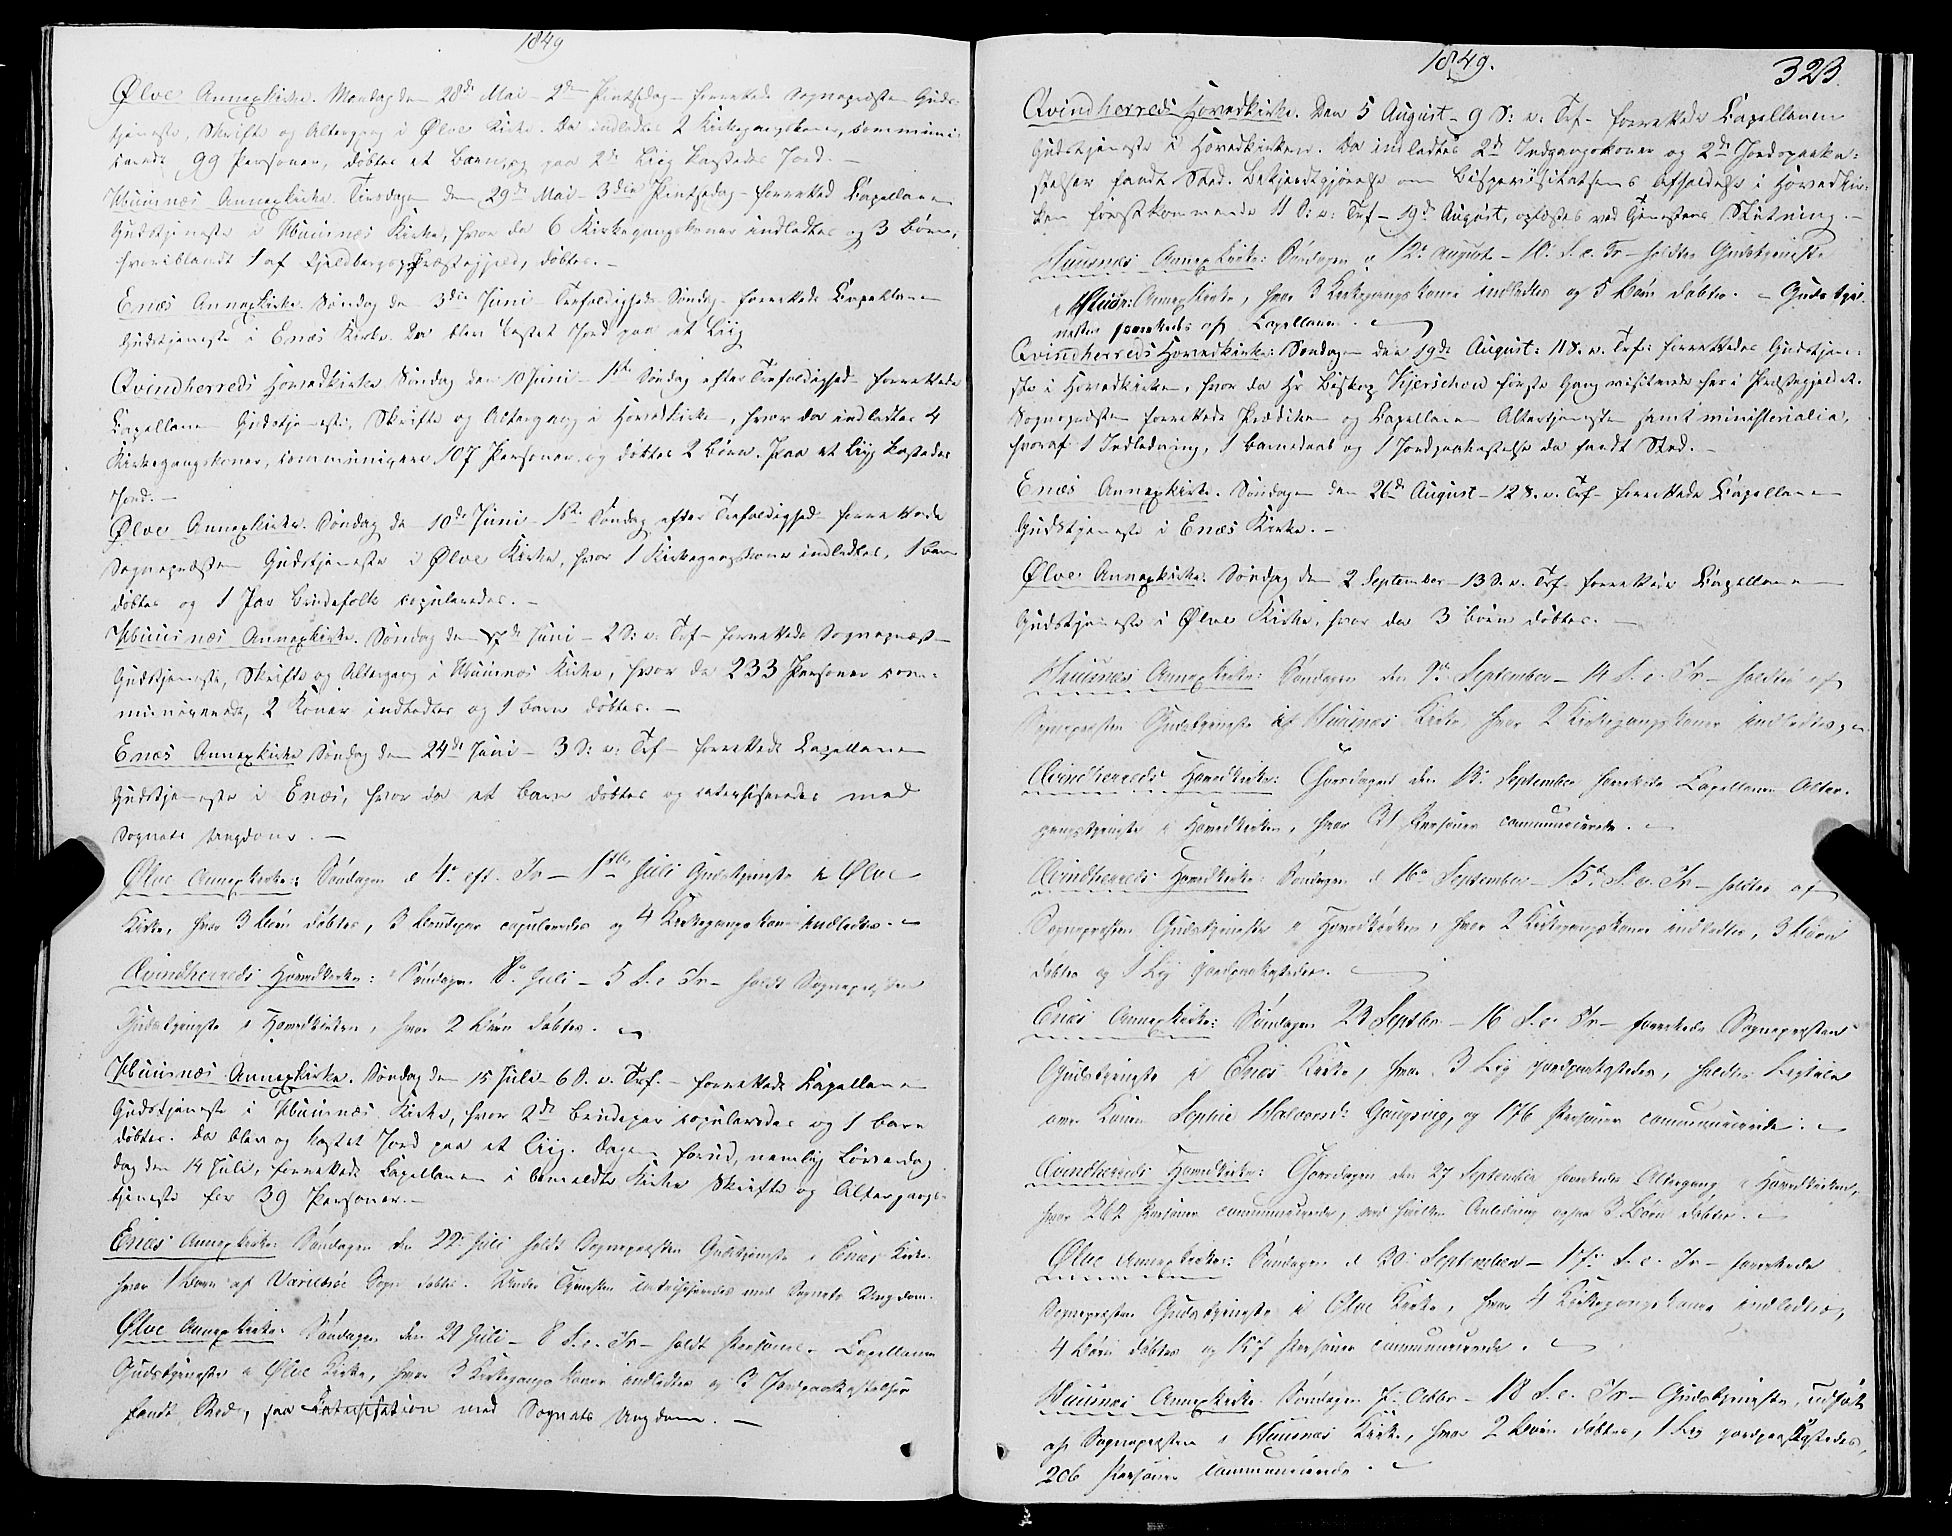 1849
Ølve Annexkirke. Mandag den 28de Mai - 2den Pintsedag - forrettede Sognepræsten Guds-
tjeneste, Skrifte og Altergang i Ølve Kirke. Da indledtes 2 Kirkegangskoner, communi-
cerede 99 Personer, døbtes et Barn, og paa 2de Liig kastedes Jord. -
Huusnæs Annexkirke. Tirsdagen den 29de Mai - 3die Pintsedag - forrettede Capellanen
Gudstjeneste i Huusnæs Kirke, hvor da 6 Kirkegangskoner indledtes og 3 Børn,
hvoriblandt 1 af Fjeldbergs Præstegjeld, døbtes. -
Enæs Annexkirke. Søndag den 3die Juni - Trefoldigheds Søndag - forrettede Capellanen
Gudstjeneste i Enæs Kirke. Da blev kastet Jord paa et Liig
Qvindherreds Hovedkirke Søndag den 10 Juni - 1ste Søndag efter Trefoldighed - forrettede
Capellanen Gudstjeneste, Skrifte og Altergang i Hovedkirken, hvor da indledtes 4
Kirkegangskoner, communicere 107 Personer og døbtes 2 Børn. Paa et Liig kastedes
Jord. -
Ølve Annexkirke. Søndag den 10de Juni - 1ste Søndag efter Trefoldighed - forrettede
Sognepræsten Gudstjeneste i Ølve Kirke, hvor 1 Kirkegangskone indledtes, 1 Barn
døbtes og 1 Par Brudefolk copuleredes. -
Huusnæs Annexkirke. Søndag den 17de Juni - 2 S: e: Trf - forrettede Sognepræsten
Gudstjeneste, Skrifte og Altergang i Huusnæs Kirke, hvor da 233 Personer com-
municerede, 2 Koner indledtes og 1 Barn døbtes. -
Enæs Annexkirke Søndag den 24de Juni - 3 S: e: Trf - forrettede Capellanen
Gudstjeneste i Enæs, hvor da et Barn døbtes og catechiseredes med
Sognets Ungdom. -
Ølve Annexkirke: Søndagen d 4e eft. Tr - 1ste Juli Gudstjeneste i Ølve
Kirke, hvor 3 Børn døbtes, 3 Brudepar copuleredes og 4 Kirkegangskoner indledtes. -
Qvindherreds Hovedkirke: Søndagen 8de Juli - 5 S. e Tr - holdt Sognepræsten
Gudstjeneste i Hovedkirken, hvor 2 Børn døbtes. -
Huusnæs Annexkirke. Søndag den 15 Juli - 6 S. e. Trf. - forrettede Capellanen
Gudstjeneste i Huusnæs Kirke, hvor 2de Brudepar copuleredes og 1 Barn
døbtes. Da blev og kastet Jord paa et Liig. Dagen forud, nemlig Løver-
dag den 14 Juli, forrettede Capellanen i bemeldte Kirke Skrifte og Altergangs-
tjeneste for 39 Personer. -
Enæs Annexkirke: Søndagen den 22de Juli holdt Sognepræsten Gudstjeneste i Enæs Kirke
hvor 1 Barn af Sogn døbtes. Under Tjenesten catechiseredes med Sognets Ungdom.
Ølve Annexkirke: Søndagen den 29 Juli - 8 S. e. Tr - holdt Capellanen
Gudstjeneste i Ølve Kirke, hvor 3 Kirkegangskoner indledtes og 3 Jordpaakastelser
fandt Sted, saa Catechisation med Sognets Ungdom. -
1849.
323
Qvindherreds Hovedkirke. Den 5 August - 9 S: e: Trf - forrettede Capellanen
Gudstjeneste i Hovedkirken. Da indledtes 2de Indgangskoner og 2de Jordpaaka-
stelser fandt Sted. Bekjendtgjørelse om Bispevisitatsens Afholdelse i Hovedkir-
ken førstkommende 11 S: e: Trf - 19de August, oplæstes ved Tjenestens Slutning. -
Huusnæs Annexkirke: Søndagen d 12te August - 10. S. e. Tr - holdtes Gudstjeneste
i Huusn: Annexkirke, hvor 3 Kirkegangskoner indledtes og 5 Børn døbtes. - Gudstje-
nesten forrettedes af Capellanen. -
Qvindherreds Hovedkirke: Søndagen den 19de August: 11 S. e. Trf: forrettedes Gudstjene-
ste i Hovedkirken, hvor da Hr Biskop Kjerschow første Gang visiterede her i Præstegjeldet.
Sognepræsten forrettede Prædiken og Capellanen Altertjenesten samt ministerialia,
hvoraf 1 Indledning, 1 Barnedaab og 1 Jordpaakastelse da fandt Sted. -
Enæs Annexkirke. Søndagen den 26de August - 12 S. e. Trf - forrettede Capellanen
Gudstjeneste i Enæs Kirke. -
Ølve Annexkirke. Søndag den 2 September - 13 S. e. Trf - forrettede Capellanen
Gudstjeneste i Ølve Kirke, hvor da 3 Børn døbtes. -
Huusnæs Annexkirke: Søndagen den 9de September - 14 S. e. Tr - holdtes af
Sognepræsten Gudstjeneste i Huusnæs Kirke hvor 2 Kirkegangskoner indledtes
Qvindherreds Hovedkirke: Torsdagen den 13de September forrettede Capellanen Alter-
gangstjeneste i Hovedkirken, hvor 31 Personer communicerede. -
Qvindherreds Hovedkirke: Søndagen d 16de September - 15de S. e. Tr - holdtes af
Sognepræsten Gudstjeneste i Hovedkirken, hvor 2 Kirkegangskoner indledtes, 3 Børn
døbtes og 1 Lig jordpaakastedes. -
Enæs Annexkirke: Søndagen 23 Septbr - 16 S. e. Tr - forrettede Sognepræsten
Gudstjeneste i Enæs Kirke, hvor 3 Lig jordpaakastedes, holdtes Ligtale
over Konen Sophie Halvorsd: Gaugsvig, og 176 Personer communicerede. -
Qvindherreds Hovedkirke: Torsdagen den 27 September forrettedes Altergang i Hovedkirken,
hvor 262 Personer communicerede, ved hvilken Anledning ogsaa 3 Børn døbtes. -
Ølve Annexkirke: Søndagen d 30te September - 17de S. e. Tr - forrettede
Sognepræsten Gudstjeneste i Ølve Kirke, hvor 4 Kirkegangskoner indledtes,
4 Børn døbtes og 157 Personer communicerede. -
Huusnæs Annexkirke. Søndagen 7de Octbr - 18 S. e. Tr - Gudstjeneste, udført
af Sognepræsten i Huusnæs Kirke, hvor 2 Børn døbtes, 1 Lig jordpaakastedes,
206 Personer communicerede. -